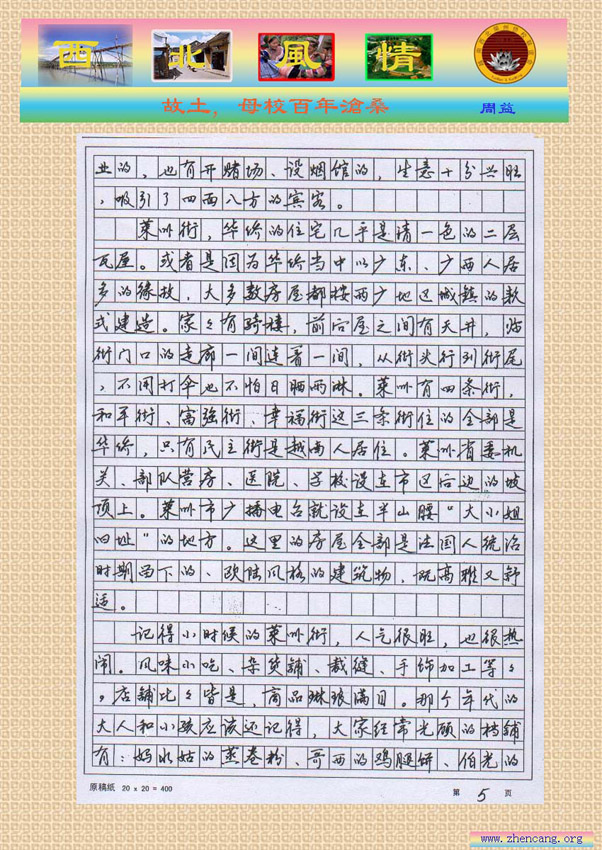 西北風情
故土，母校百年滄桑 周益
业的，也有开赌场、设烟馆的，生意十分兴旺
，吸引了四面八方的宾客。
莱州街，华侨的住宅几乎是清一色的二层
瓦屋。或者是因为华侨当中以广东、广西人居
多的缘故，大多数房屋都按两广地区城镇的款
式建造。家々有骑楼，前后屋之间有天井，沿
街门口的走廊一间连着一间，从街头行到街尾
，不用打伞也不怕日晒雨淋。莱州有四条街，
和平街、富强街、幸福街这三条街住的全部是
华侨，只有民主街是越南人居住。莱州省委机
关、部队营房、医院、学校设在市区后边的坡
顶上。莱州市广播电台就设在半山腰“大小姐
四址”的地方。这里的房屋全部是法国人统治
时期留下的、欧陆风格的建筑物，既高雅又舒
适。
记得小时候的莱州街，人气很旺，也很热
闹。风味小吃、杂货铺、裁缝、手饰加工等々
，店铺比々皆是，商品琳琅满目。那个年代的
大人和小孩应该还记得，大家经常光顾的档铺
有：妈水姑的蒸卷粉、哥西的鸡腿饼、伯光的
原稿纸 20 x 20 = 400 第 5 页
www.zhencang.org